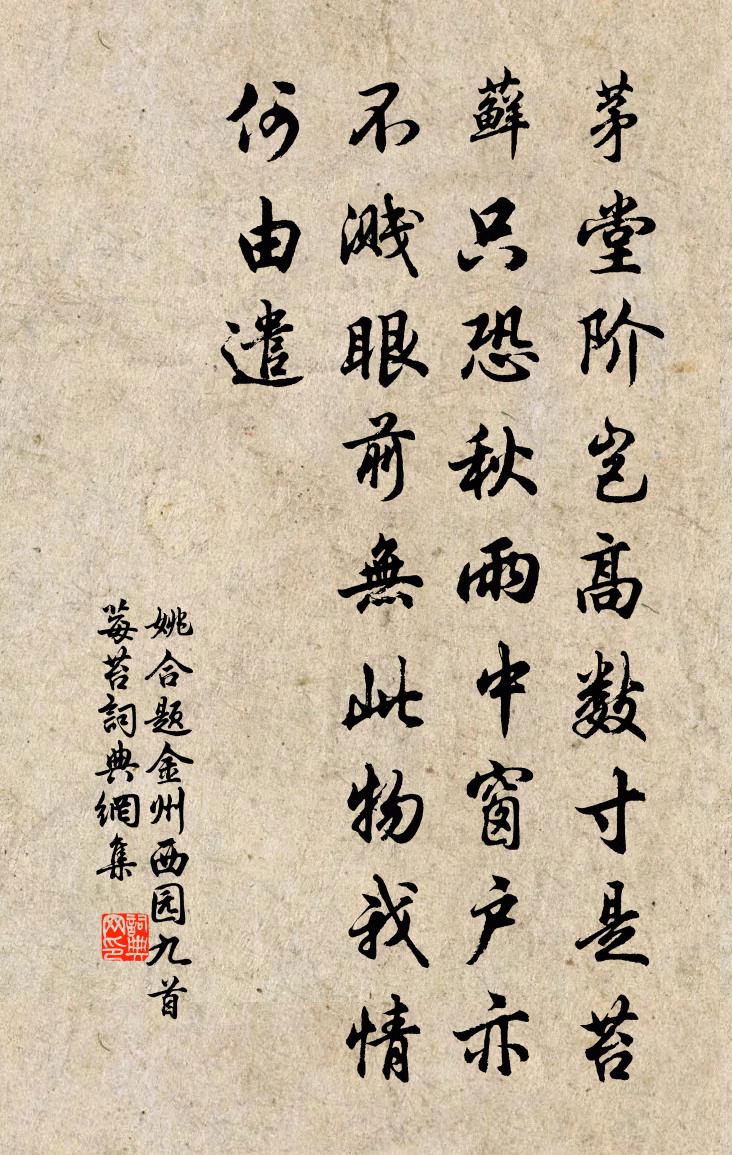 茅堂阶岂高数寸是苔
蘚只恐秋雨中窗户亦
不溅眼前無此物我情
何由遣
姚合题金州西园九首
莓苔詞典網集
詞典
网印